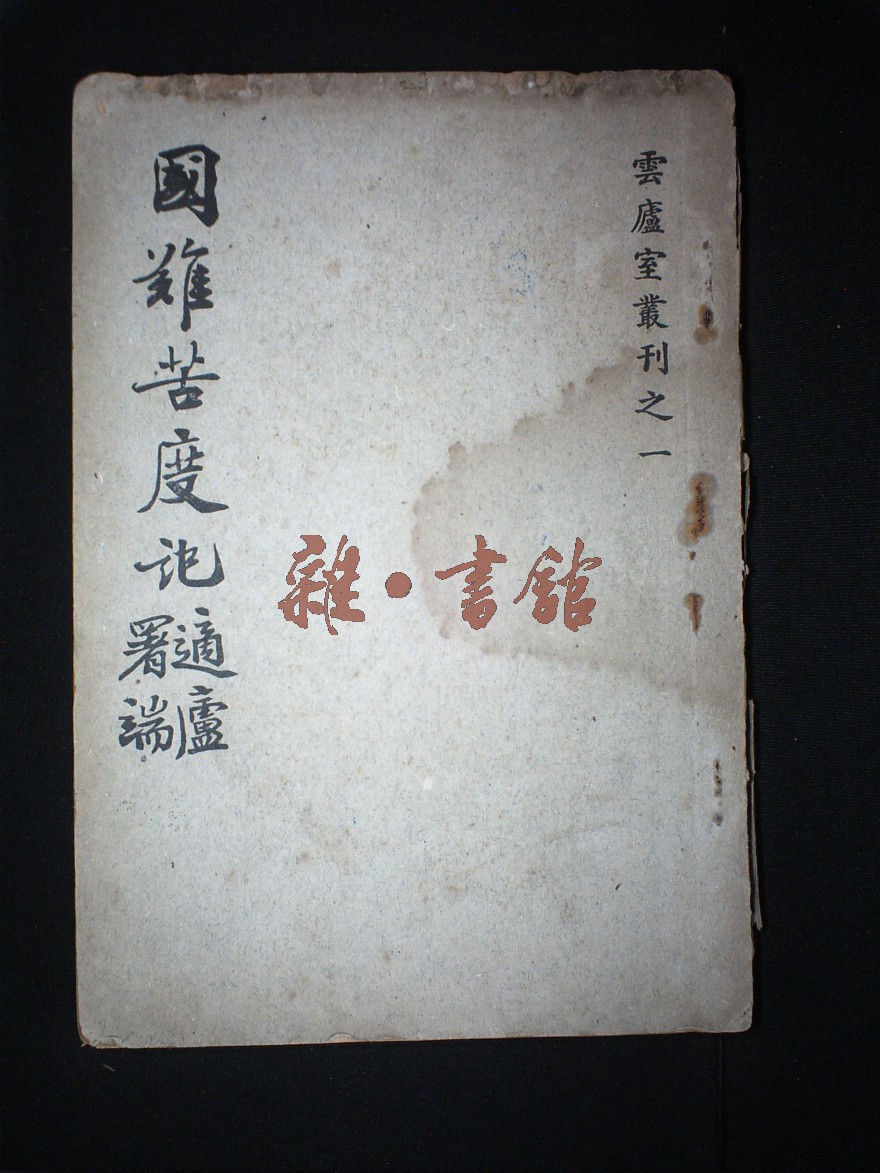 雲廬室叢刊之一
國難苦度記
適廬
署端
雜·書館